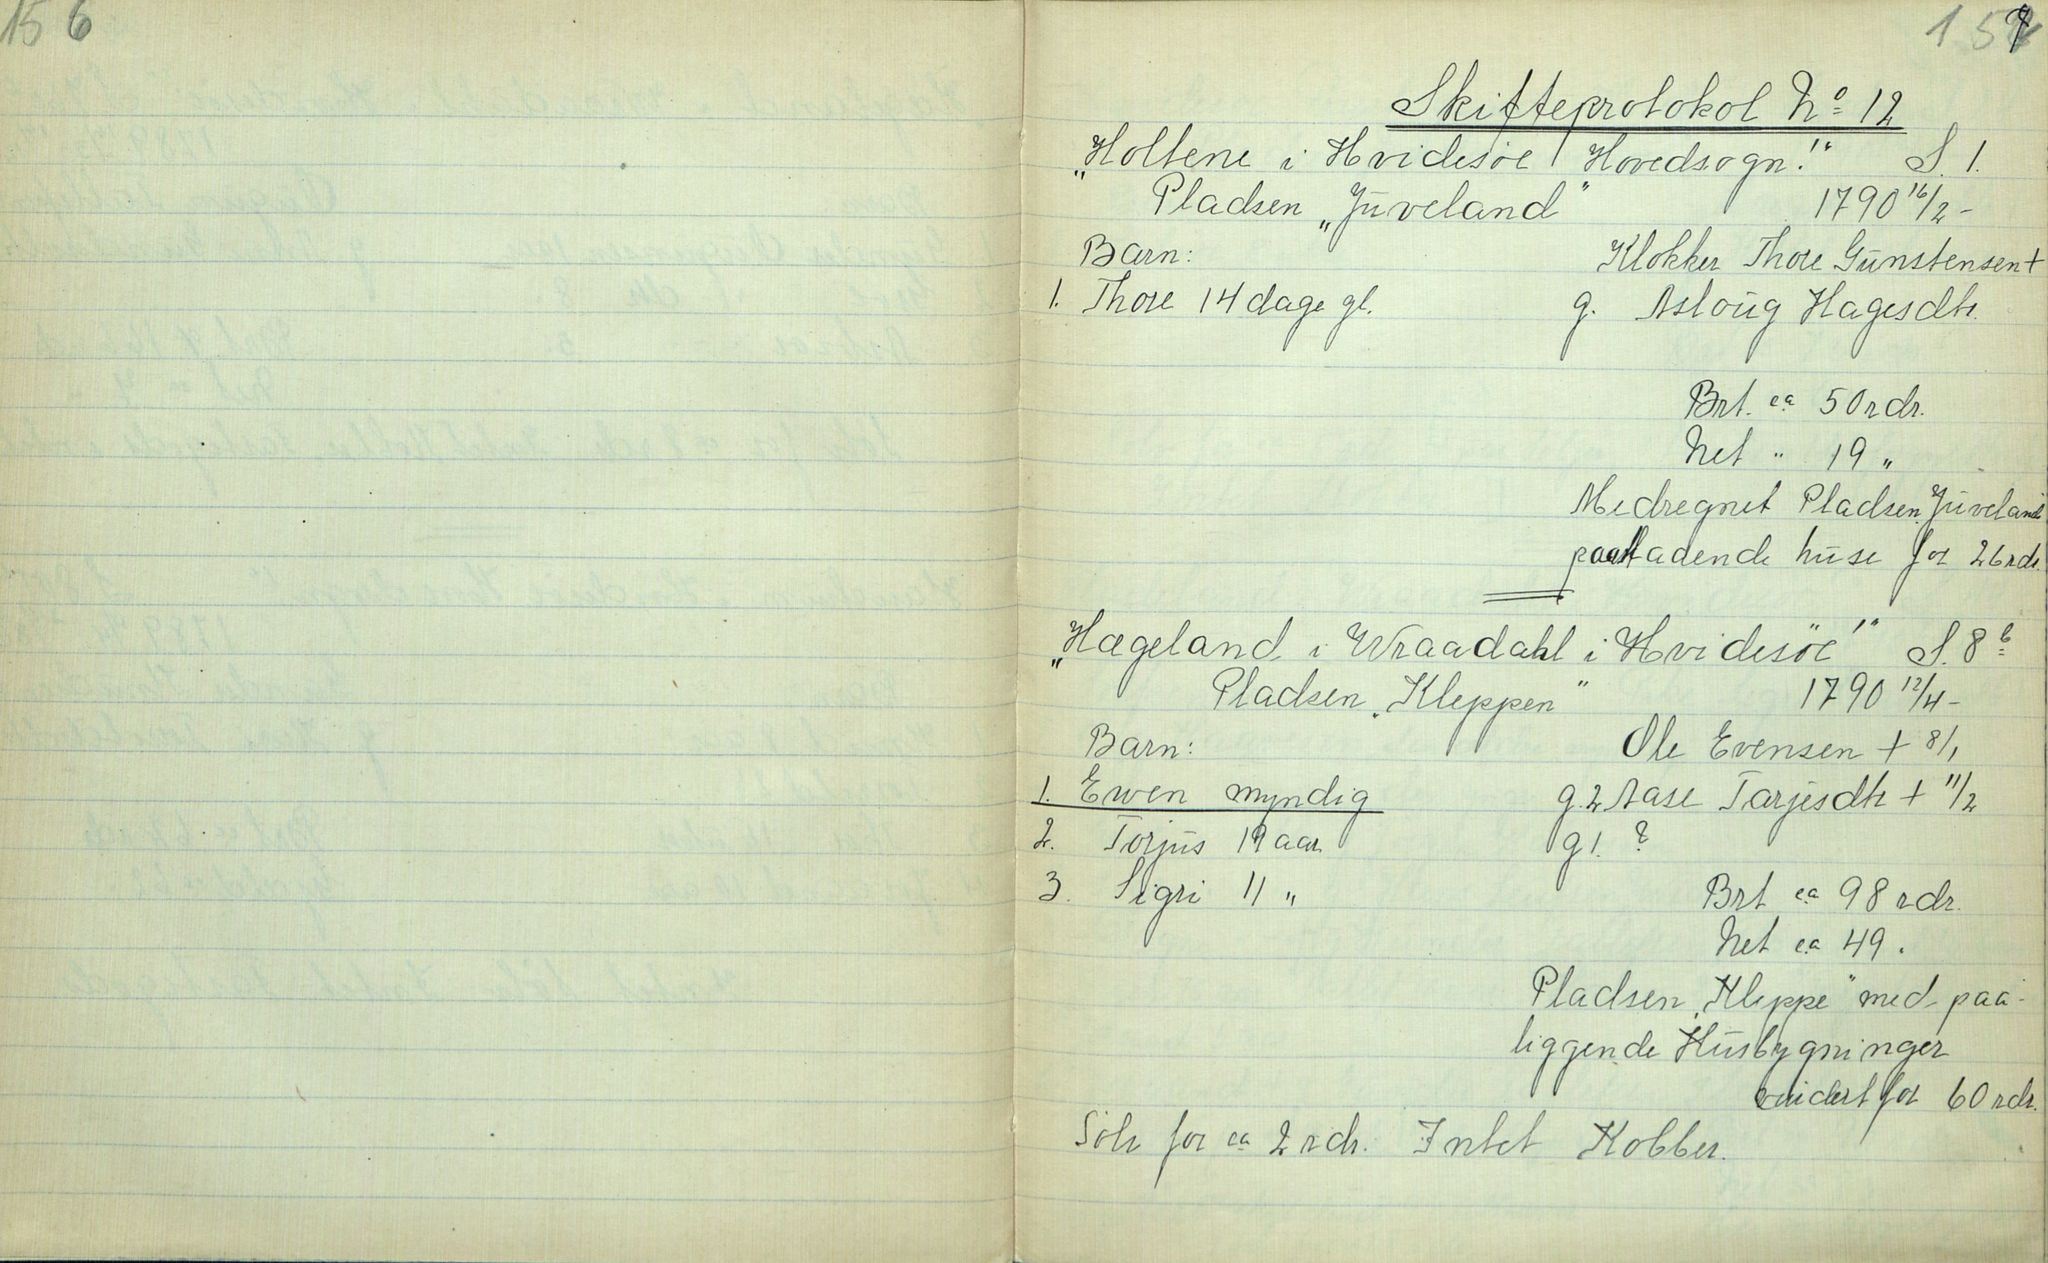 156
157
Skifteprotokol No 12
"Holtene i Hvidesøe Hovedsogn." S. 1.
Pladsen "Juveland" 1790 16/2 -
Barn: Klokker Thore Gunstensen +
1. Thore 14 dage gl. g. Asloug Hagesdtr.
Brt. ca 50 rdr.
Net " 19 "
Medregnet Pladsen Juveland
paastadende huse for 26 rdr.
"Hægeland i Wraadahl i Hvidesöe" S. 8 b
Pladsen "Kleppen" 1790 12/4 -
Barn: Ole Evensen + 8/1
1. Ewen myndig g. 2 Aase Tarjesdtr + 11/2
2. Torjus 19 aar g 1. ?
3. Sigri 11 " Brt ca 98 rdr.
Net ca 49 .
Pladsen "Kleppe" med paa-
liggende Husbygninger
vurdert for 60 rdr.
Sölv for ca 2 rdr. Intet Kobber.